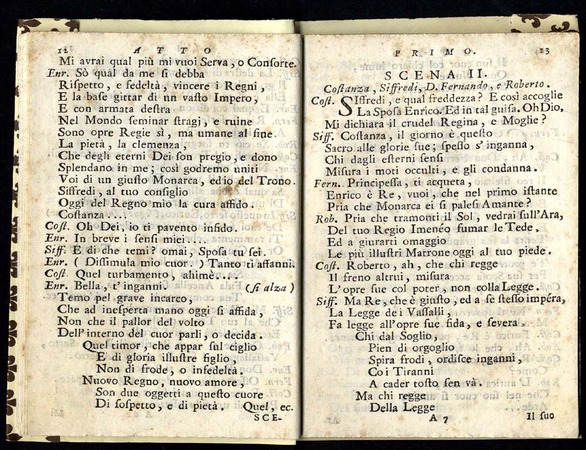 12 ATTO
Mi avrai qual più mi vuoi Serva, o Consorte.
Enr. Sò qual da me si debba
Rispetto, e fedeltà, vincere i Regni,
E la base gittar di un vasto Impero,
E con armata destra
Nel Mondo seminar stragi, e ruine
Sono opre Regie sì, ma umane al fine
La pietà, la clemenza,
Che degli eterni Dei son pregio, e dono
Splendano in me; così godremo uniti
Voi di un giusto Monarca, ed io del Trono.
Siffredi, al tuo consiglio
Oggi del Regno mio la cura affido.
Costanza....
Cost. Oh Dei, io ti pavento infido.
Enr. In breve i sensi miei....
Siff. E di che temi? omai, Sposa tu sei.
Enr. ( Dissimula mio cuor. ) Tanto ti affanni.
Cost. Quel turbamento, ahimè....
Enr. Bella, t' inganni. (si alza)
Temo pel grave incarco,
Che ad inesperta mano oggi si affida,
Non che il pallor del volto
Dell' interno del cuor parli, o decida.
Quel timor, che appar sul ciglio
E di gloria illustre figlio,
Non di frode, o infedeltà.
Nuovo Regno, nuovo amore,
Son due oggetti a questo cuore
Di sospetto, e di pietà. Quel, ec.
SCE-
PRIMO. 13
SCENA II.
Costanza, Siffredi, D. Fernando, e Roberto.
Cost. Siffredi, e qual freddezza? E così accoglie
La Sposa Enrico? Ed in tal guisa. Oh Dio,
Mi dichiara il crudel Regina, e Moglie?
Siff. Costanza, il giorno è questo
Sacro alle glorie sue; spesso s' inganna,
Chi dagli esterni sensi
Misura i moti occulti, e gli condanna.
Fern. Principessa, ti acqueta,
Enrico è Re, vuoi, che nel primo istante
Pria che Monarca ei si palesi Amante?
Rob. Pria che tramonti il Sol, vedrai sull' Ara,
Del tuo Regio Imenéo fumar le Tede,
Ed a giurarti omaggio
Le più illustri Matrone oggi al tuo piede.
Cost. Roberto, ah, che chi regge
Il freno altrui, misura
L' opre sue col poter, non colla Legge.
Siff. Ma Re, che è giusto, ed a se stesso impéra,
La Legge de i Vassalli,
Fa legge all' opre sue fida, e severa.
Chi dal Soglio,
Pien di orgoglio
Spira frodi, ordisce inganni,
Co i Tiranni
A cader tosto sen và.
Ma chi regge
Della Legge
A 7 Il suo